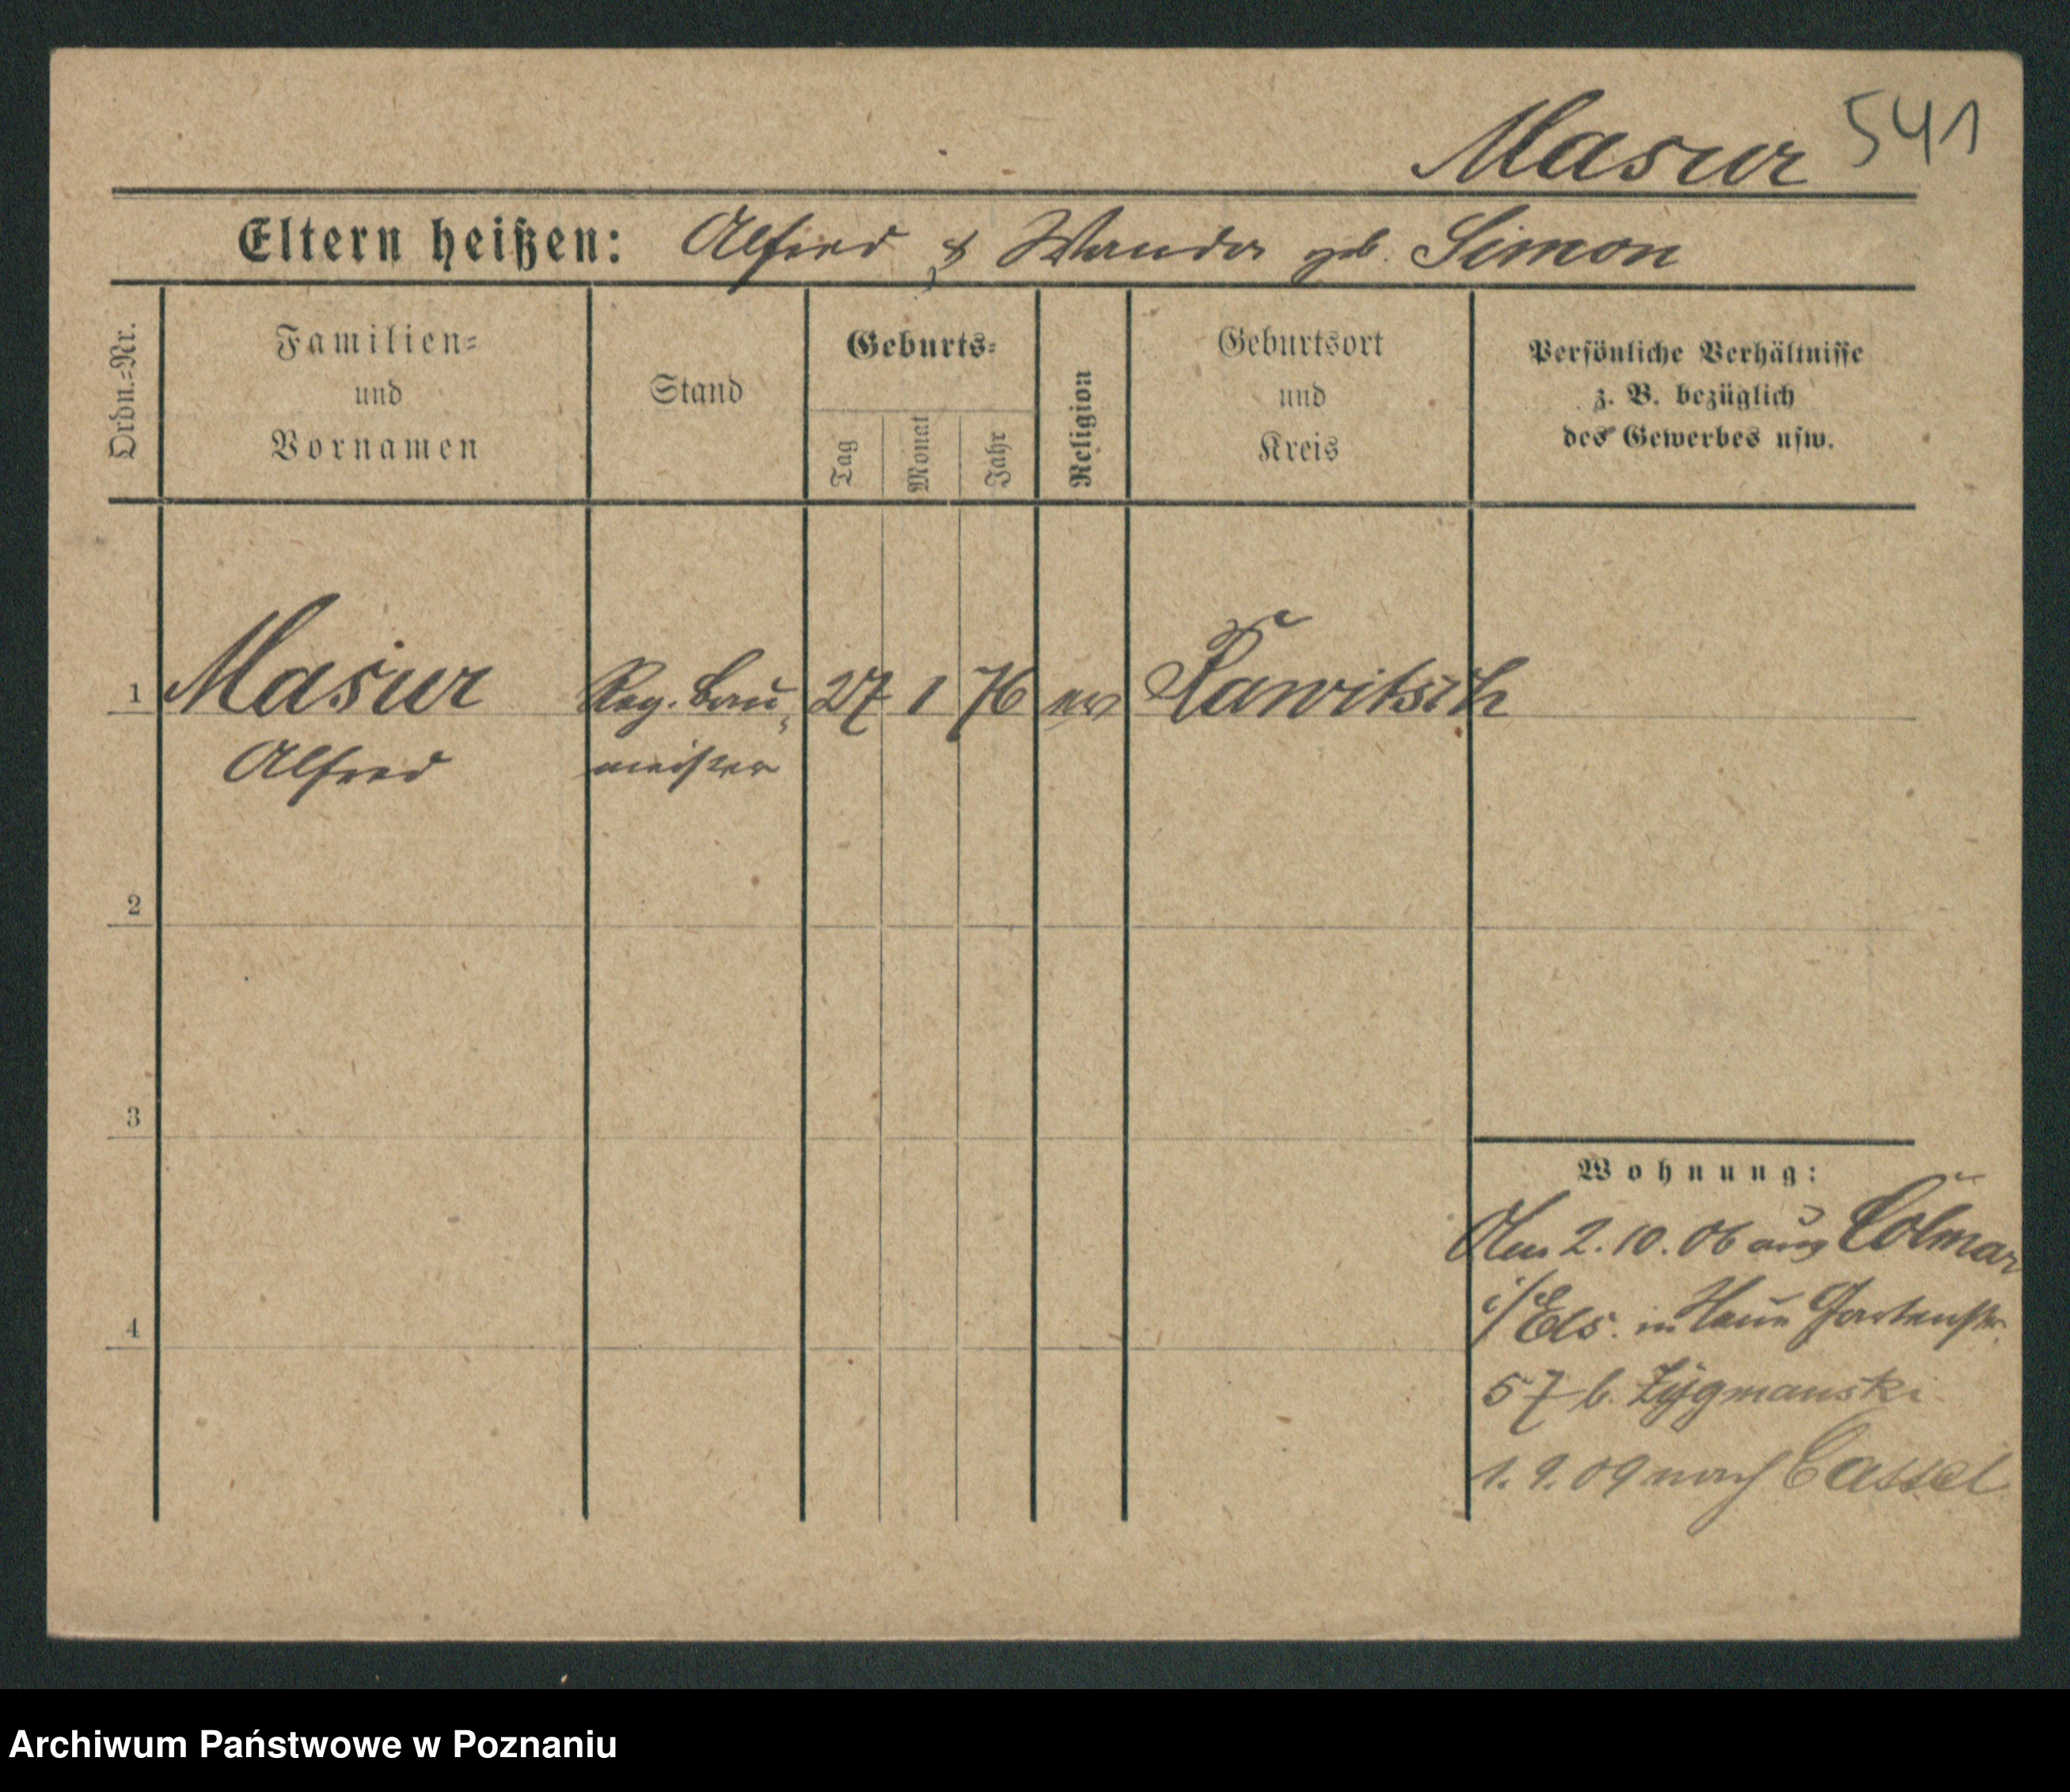 Masur 541
Eltern heißen: Alfred & Wanda gb. Simon
Ordn.-Nr.
Familien-
und
Vornamen
Stand
Geburts-
Tag
Monat
Jahr
Religion
Geburtsort
und
Kreis
Persönliche Verhältnisse
z. B. bezüglich
des Gewerbes usw.
1 Masur Reg. Bau- 27 1 76 ev Rawitsch
Alfred meister
2
3
4
Wohnung:
2. 10. 06 aus Colmar
i/Els. in Gartenstr.
57 b. Zygmanski
1. 9. 09 nach Cassel
Archiwum Państwowe w Poznaniu